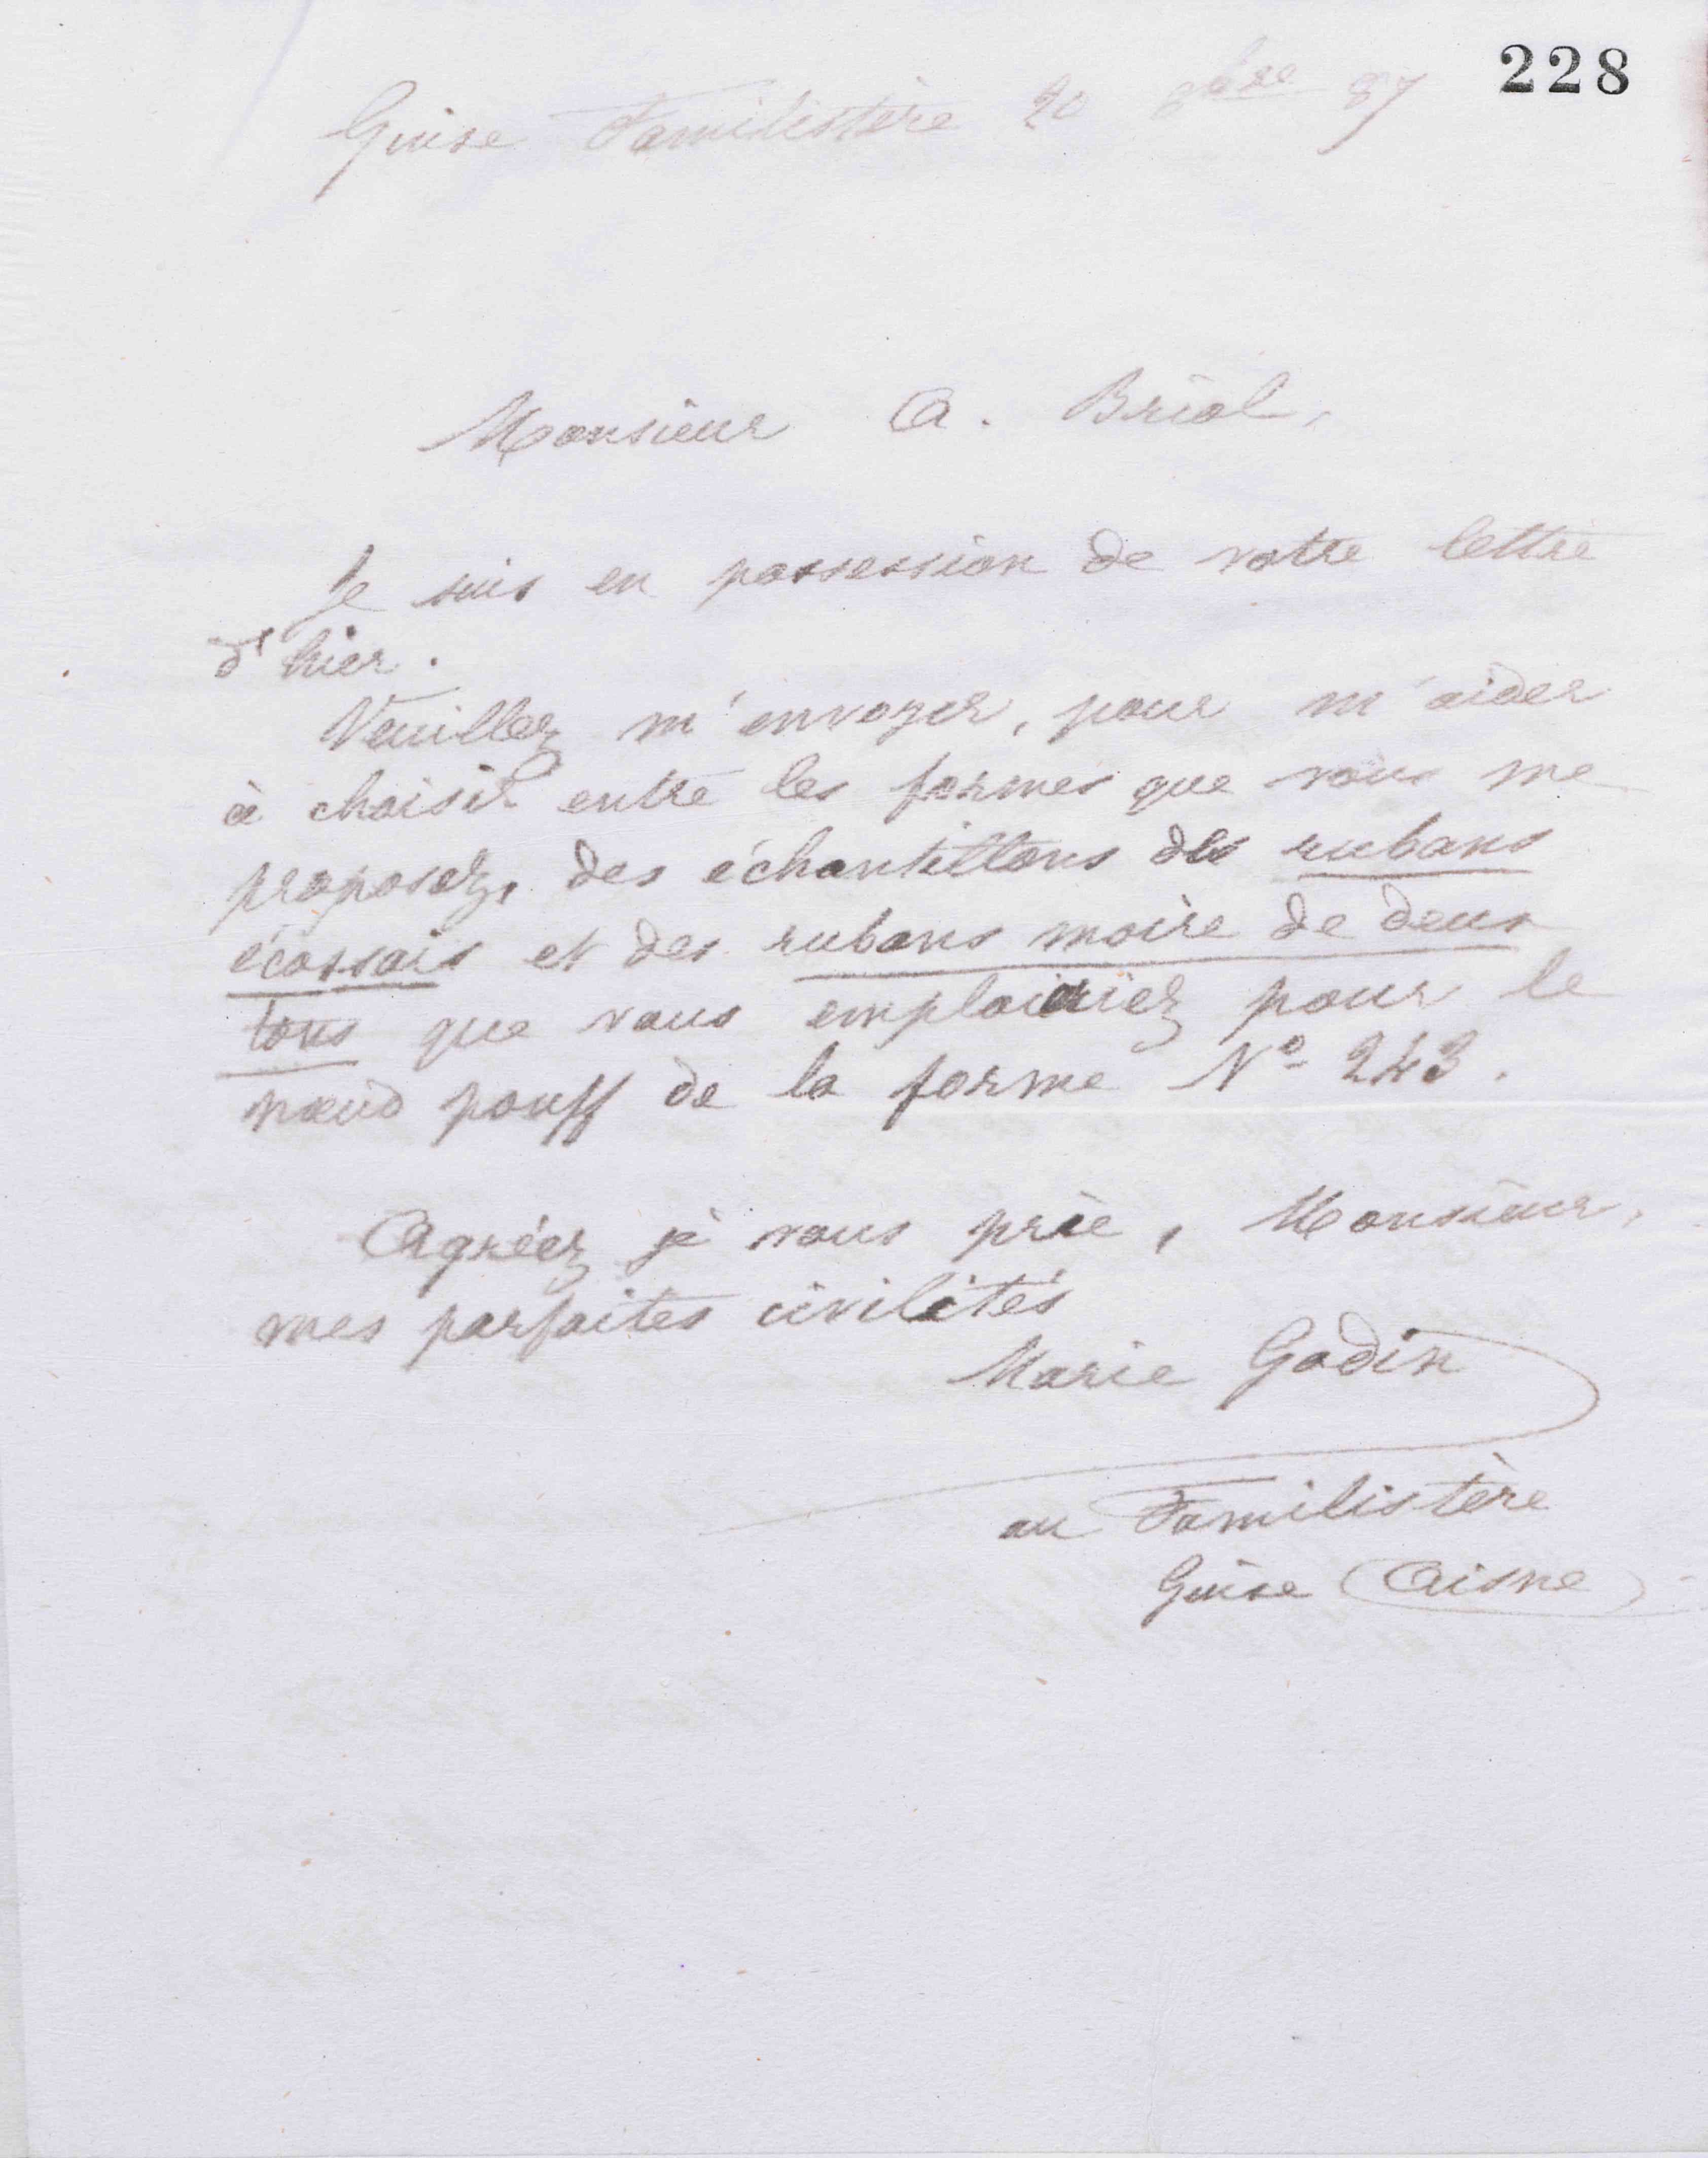 228
Guise Familistère 20 8bre 87
Monsieur A. Briol,
Je suis en possession de votre lettre
d'hier.
Veuillez m'envoyer, pour m'aider
à choisir entre les formes que vous me
proposez, des échantillons des rubans
écossais et des rubans moire de deux
tons que vous emploieriez pour le
nœud pouff de la forme No 243.
Agréez je vous prie, Monsieur,
mes parfaites civilités
Marie Godin
au Familistère
Guise (Aisne)